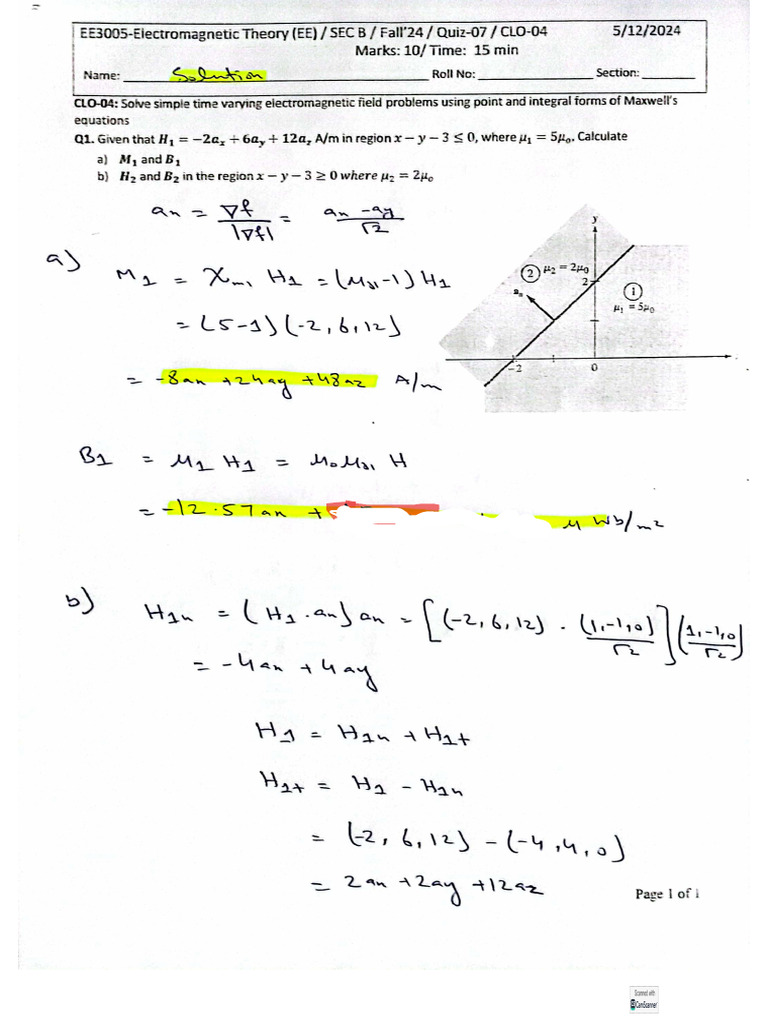 EE3005-Electromagnetic Theory (EE) / SEC B / Fall'24 / Quiz-07 / CLO-04 5/12/2024
Marks: 10/ Time: 15 min
Name: Solution Roll No: Section:
CLO-04: Solve simple time varying electromagnetic field problems using point and integral forms of Maxwell's
equations
Q1. Given that H₁ = −2aₓ + 6aᵧ + 12a_z A/m in region x − y − 3 ≤ 0, where μ₁ = 5μₒ. Calculate
a) M₁ and B₁
b) H₂ and B₂ in the region x − y − 3 ≥ 0 where μ₂ = 2μₒ
an = ∇f / |∇f| = ax - ay / √2
y
② μ₂ = 2μ₀
2
aₙ
①
μ₁ = 5μ₀
-2
0
a)
M1 = Xm1 H1 = (Mr1 -1) H1
= (5-1) (-2, 6, 12)
= -8ax +24ay +48az A/m
B1 = M1 H1 = MoMr1 H
= -12.57ax +
M Wb/m2
b)
H1n = (H1 . an) an = [(-2, 6, 12) . (1,-1,0)/√2] (1,-1,0)/√2
= -4ax + 4ay
H1 = H1n + H1t
H1t = H1 - H1n
= (-2, 6, 12) - (-4, 4, 0)
= 2ax +2ay +12az
Page 1 of 1
Scanned with
CamScanner